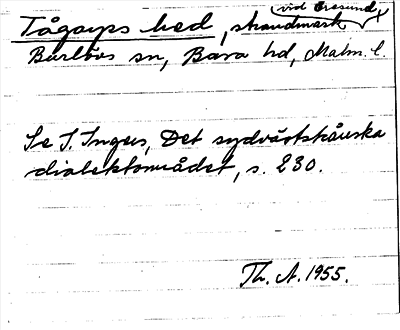 Tågarps hed, strandmark (vid Öresund)
Burlövs sn, Bara hd, Malm. l.
Se I. Ingers, Det sydvästskånska
dialektområdet, s. 230.
Th. A. 1955.